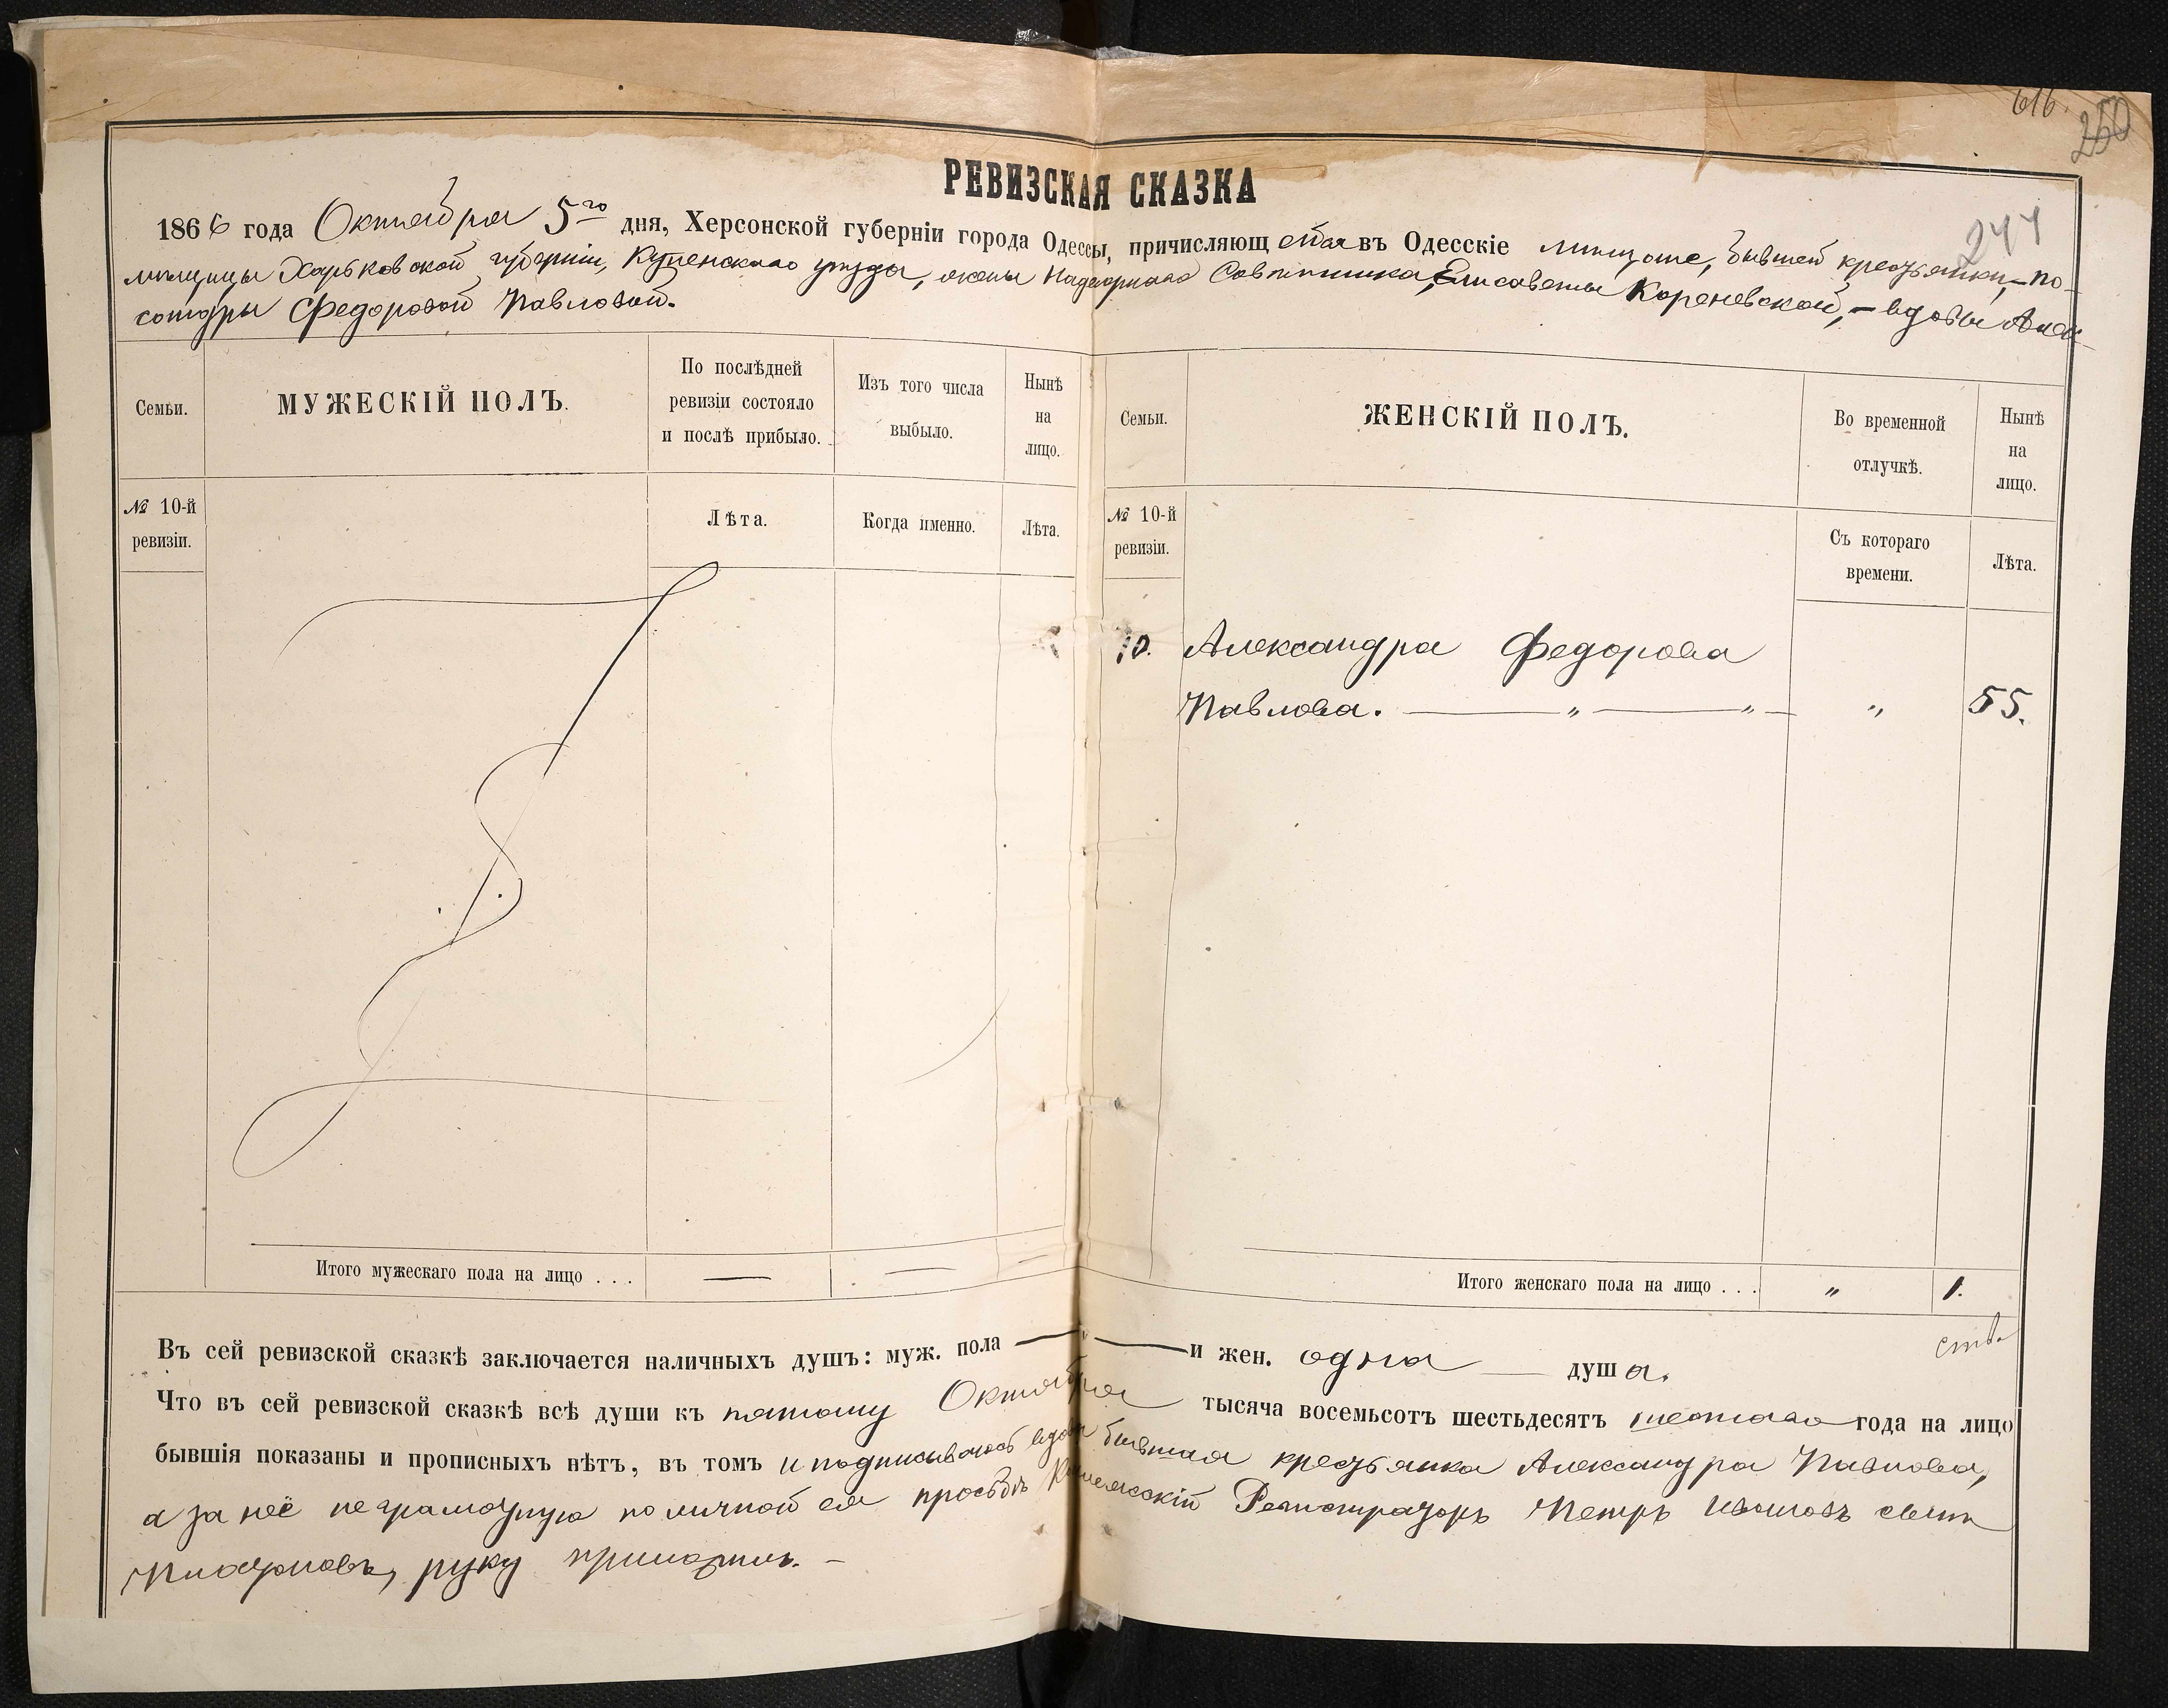 616.
250
244
РЕВИЗСКАЯ СКАЗКА
1866 года Октября 5го дня, Херсонской губерніи города Одессы, причисляющейся въ Одесскіе мещане, бывшей крестьянки, по-
мещицы Харьковской губерніи, Купенскаго уезда, жены Надворнаго Советника, Елисаветы Кореневской, – вдовы Алек-
сандры Федоровой Павловой.
Семьи.
МУЖЕСКІЙ ПОЛЪ.
По послѣдней ревизіи состояло и послѣ прибыло.
Изъ того числа выбыло.
Нынѣ на лицо.
Семьи.
ЖЕНСКІЙ ПОЛЪ.
Во временной отлучкѣ.
Нынѣ на лицо.
№ 10-й ревизіи.
Лѣта.
Когда именно.
Лѣта.
№ 10-й ревизіи.
Съ котораго времени.
Лѣта.
10. Александра Федорова
Павлова. — „ — „ — „ 55.
Итого мужескаго пола на лицо . . . — —
Итого женскаго пола на лицо . . . „ 1.
Въ сей ревизской сказкѣ заключается наличныхъ душъ: муж. пола — „ — и жен. одна — душа.
Что въ сей ревизской сказкѣ всѣ души къ пятому Октября тысяча восемьсотъ шестьдесятъ шестаго года на лицо
бывшія показаны и прописныхъ нѣтъ, въ томъ и подписываюсь вдова бывшая крестьянка Александра Павлова,
а за неё неграмотную по личной ея просьбѣ Регистраторъ Петръ Ивановъ сынъ
руку приложилъ. –